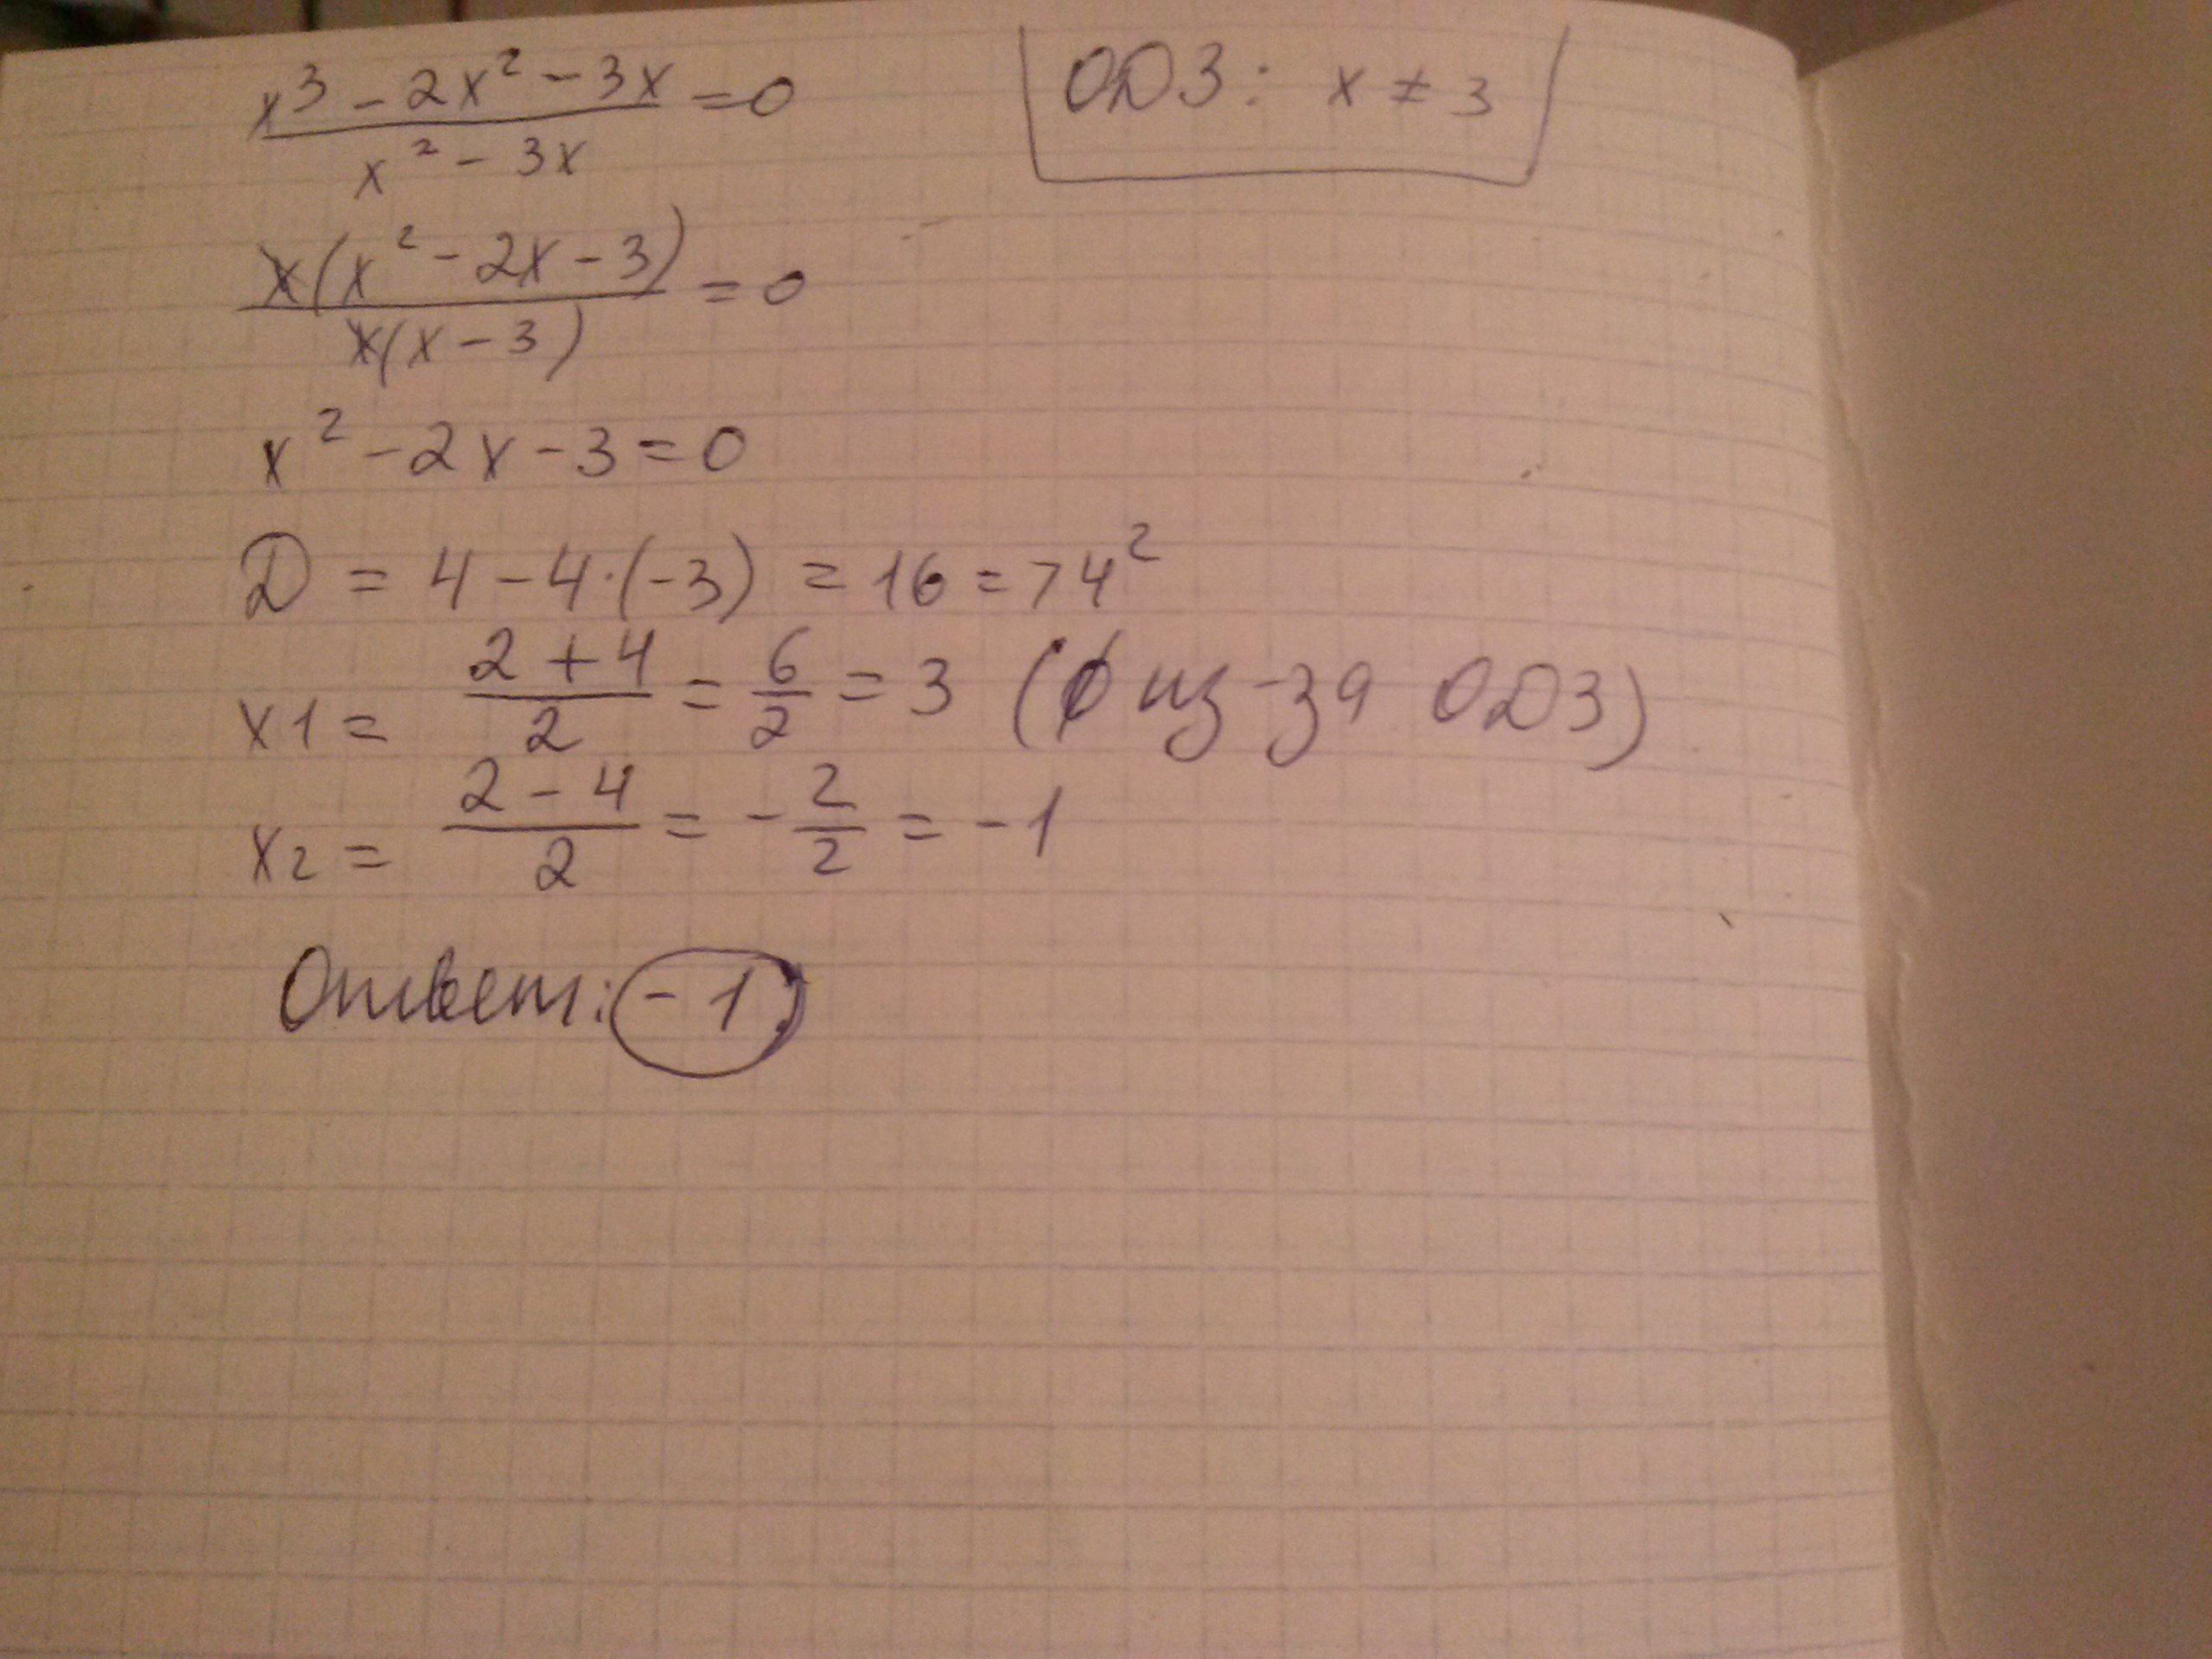 x³ - 2x² - 3x / x² - 3x = 0
ОДЗ: x ≠ 3
x(x² - 2x - 3) / x(x - 3) = 0
x² - 2x - 3 = 0
D = 4 - 4·(-3) = 16 => 4²
x1 = 2 + 4 / 2 = 6/2 = 3 (∅ из-за ОДЗ)
x2 = 2 - 4 / 2 = -2/2 = -1
Ответ: -1